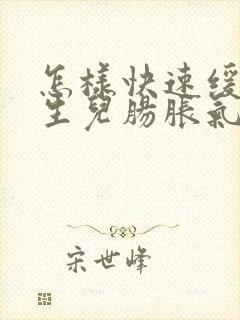 怎樣快速緩
生兒腸脹氣
宋世峰